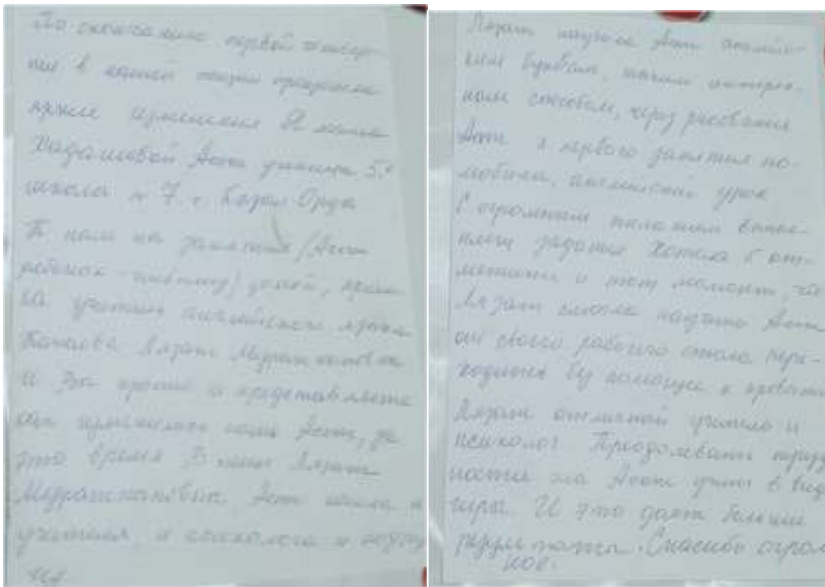 По окончанию первой четвер-
ти в нашей жизни произошли
яркие изменения Я мама
Хадашевой Асем ученица 5 "
школа № 7 г. Кызыл Орда
К нам на занятия (Асем
ребенок - ) домой, приш-
ла учитель английского языка
Лязат Муратжановна
И Вы просто не представляете
как изменилась наша Асем, за
это время В лице Лязат
Муратжановны Асем нашла и
учителя, и психолога и подру-
гу.
Лязат научила Асем английс-
ким буквам, таким интерес-
ным способом, через рисования
Асем с первого занятия по-
любила, английский урок
С огромным выпол-
няет задания Хотела б от-
метить и тот момент, что
Лязат смогла научить Асем
от своего рабочего стола пере-
ходить без помощи к кровати
Лязат отличной учитель и
психолог Преодолевать труд-
ности она Асем учит в виде
игры. И это дает большие
результаты. Спасибо огром-
ное.